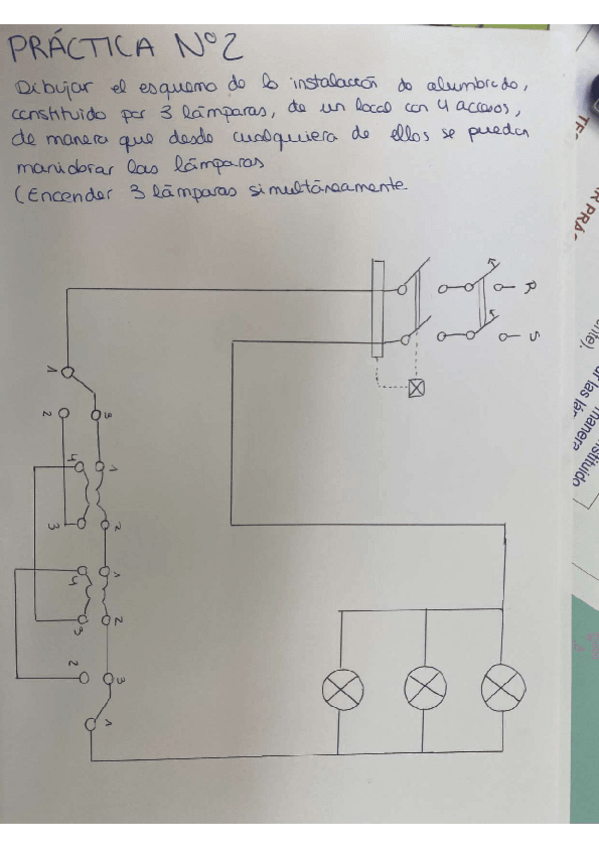 PRÁCTICA Nº2
Dibujar el esquema de la instalación de alumbrado,
constituido por 3 lámparas, de un local con 4 accesos,
de manera que desde cualquiera de ellos se puedan
maniobrar las lámparas
(Encender 3 lámparas simultáneamente.
R
S
1
2
3
4
1
3
2
4
1
3
2
2
3
1